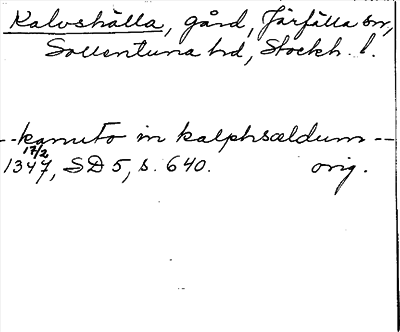 Kalvshälla, gård, Järfälla sn,
Sollentuna hd, Stockh. l.
--kanuto in kalphsældum--
17/2
1347, SD 5, s. 640. orig.